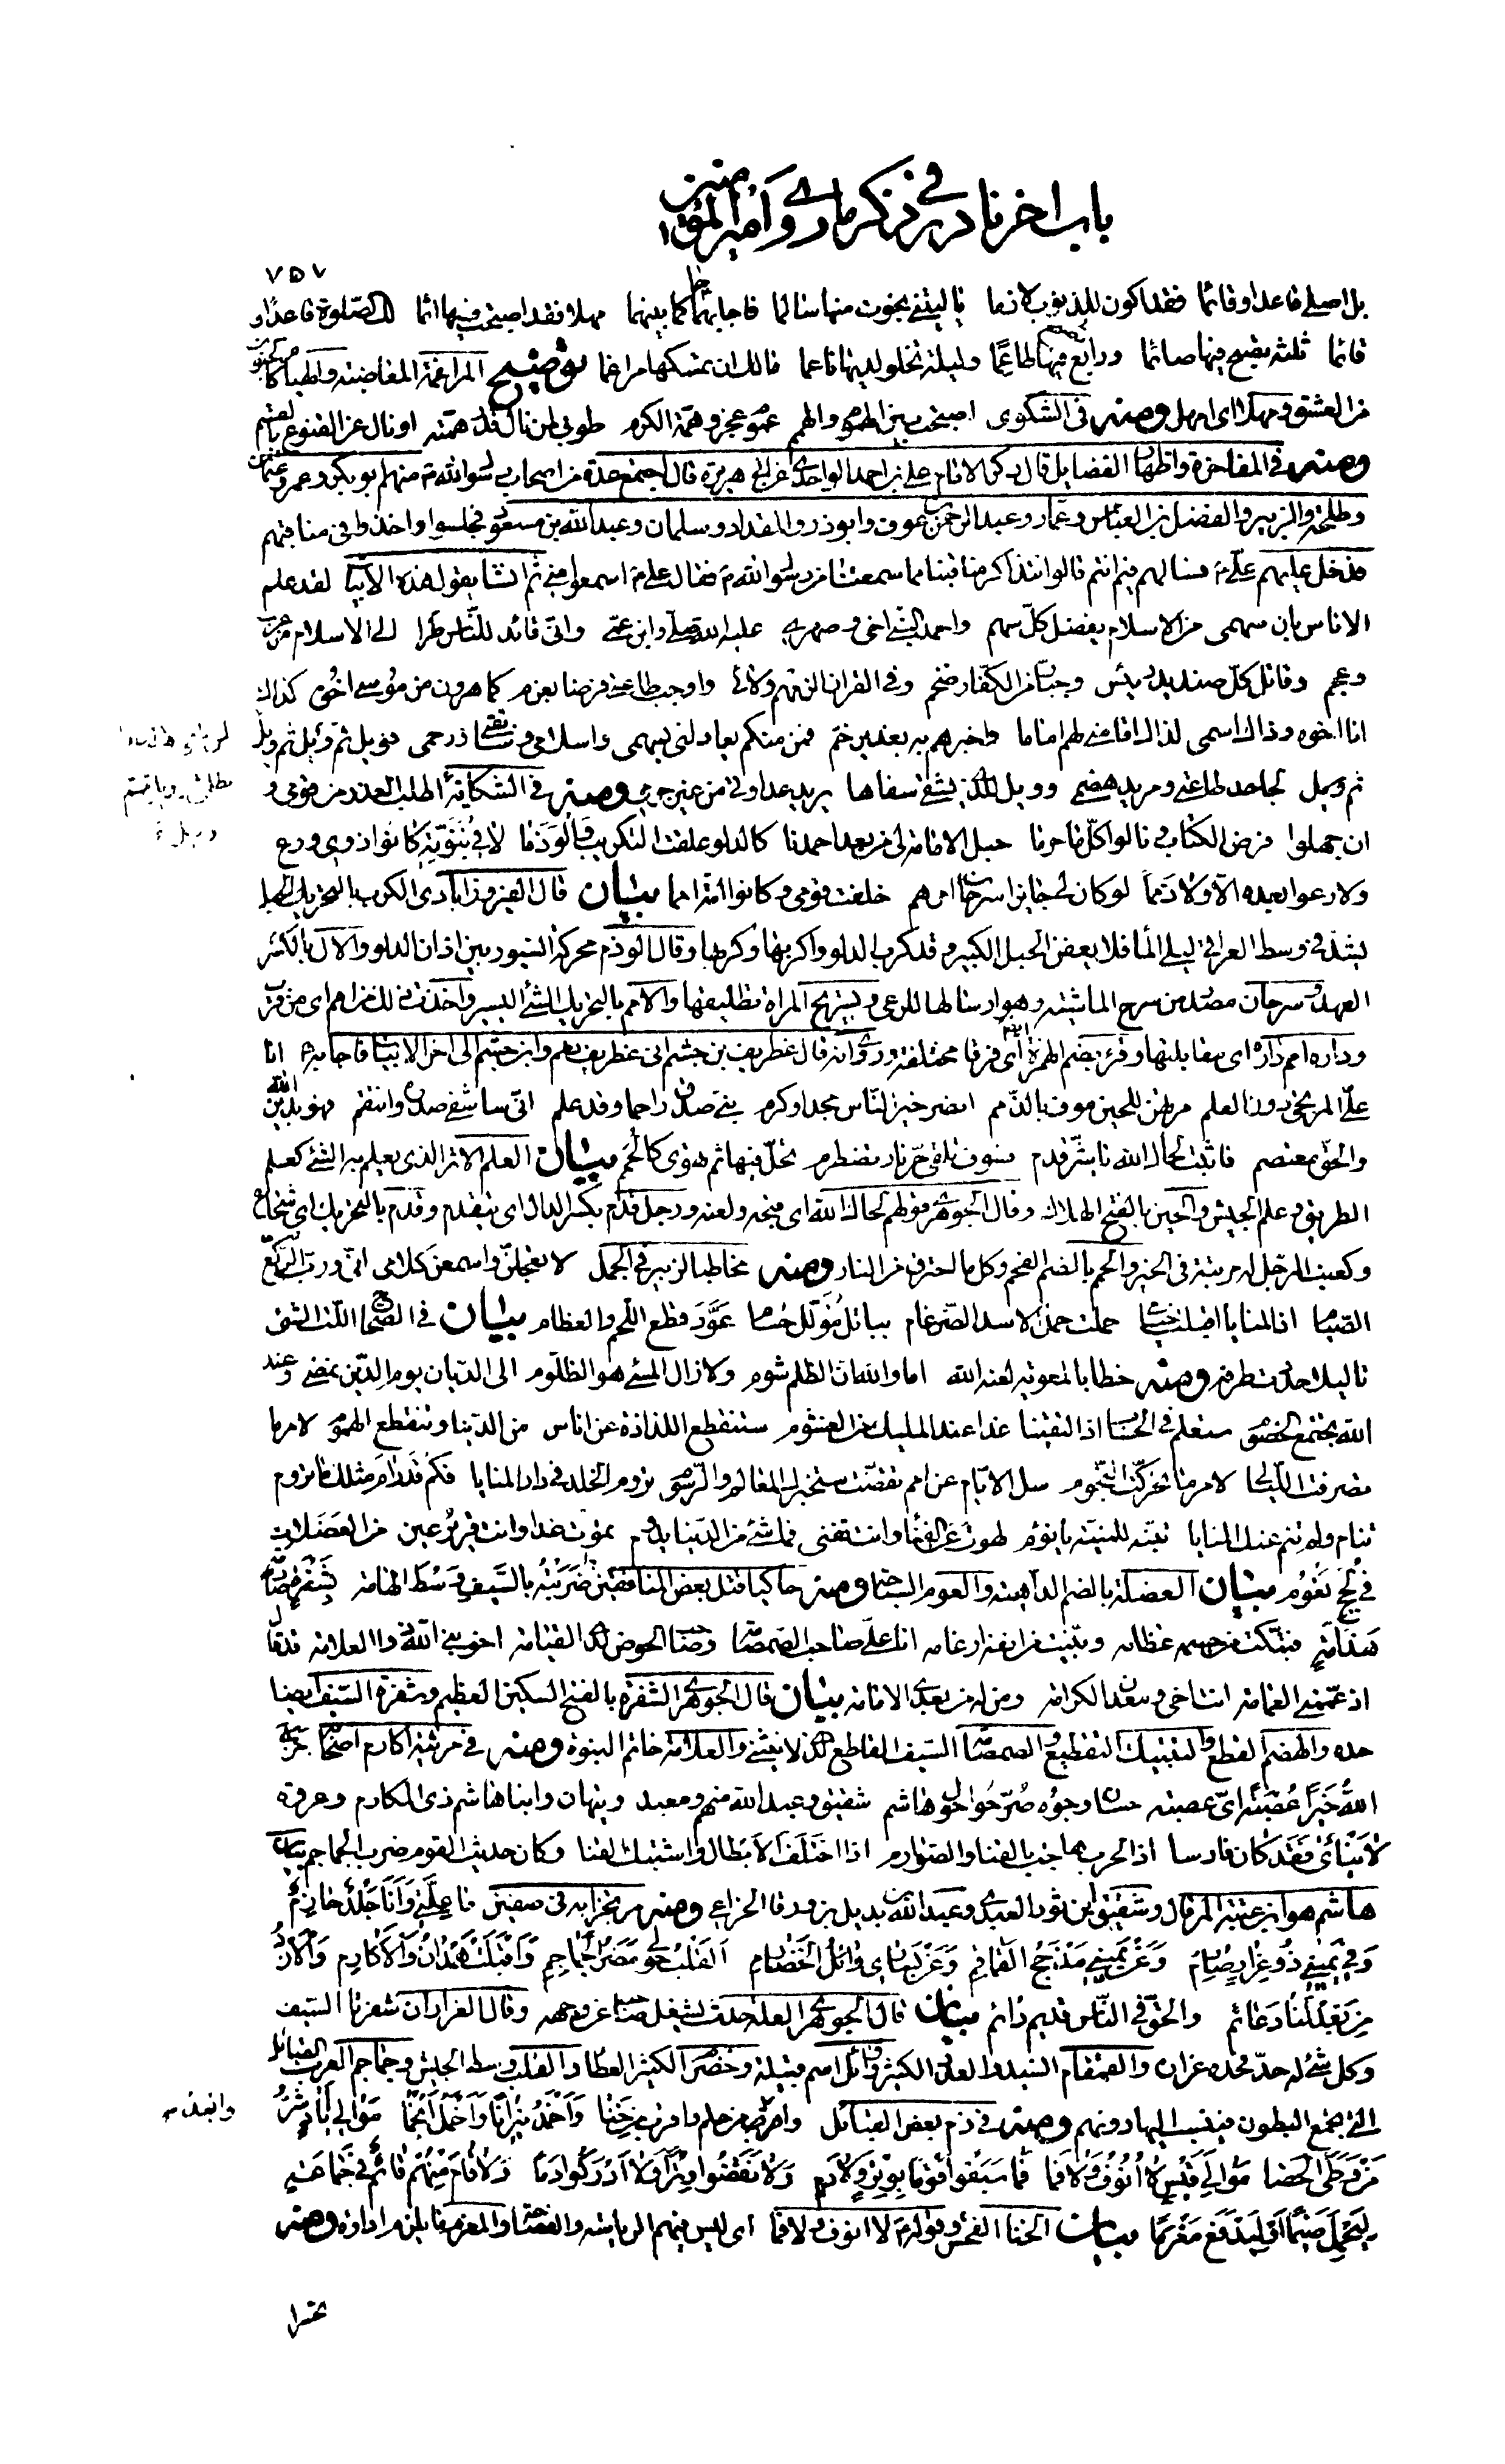 باب اخر نادر في ذكر ما روي عن امير المؤمنين
٧٥٧
بل اصلي قاعدا وقائما فقد اكون للذنوب لازما يا ليتني نجوت منها سالما فاجابهما كما بينهما مهلا فقد اصبحت فيها اثما لك الصلوة قاعدا و
قائما ثلثة تصبح فيها صائما ورابع تصبح فيها طاعما وليلة تخلو لديها ناعما مالك ان تمسكها مراغما توضيح المراغمة المغاضبة
من العشق ومهلا اي امهل ومنه في الشكوى اصبحت بين الهموم والهمم عموم عجز وهمة الكرم طوبى لمن نال قدر همته او نال عز القنوع بالقسم
ومنه في المفاخرة واظهار الفضايل قال ذكر الامام علي بن احمد الواحدي عن ابي هريرة قال اجتمع عدة من اصحاب رسول الله ص منهم ابو بكر وعمر وعثمان
وطلحة والزبير والفضل بن العباس وعمار وعبد الرحمن بن عوف وابو ذر والمقداد وسلمان وعبد الله بن مسعود فجلسوا واخذوا في مناقبهم
فدخل عليهم علي ع فسالهم فيم انتم قالوا نتذاكر مناقبنا مما سمعنا من رسول الله ص فقال علي ع اسمعوا مني ثم انشا يقول هذه الابيات لقد علم
الاناس بان سهمي من الاسلام يفضل كل سهم واحمد النبي اخي وصهري عليه الله صلى وابن عمي واني قائد للناس طرا الى الاسلام من عرب
وعجم وقاتل كل صنديد رئيس وجبار من الكفار ضخم وفي القران الزمهم ولائي واوجب طاعتي فرضا بعزم كما هرون من موسى اخوه كذاك
انا اخوه وذاك اسمي لذاك اقامني لهم اماما واخبرهم به بغدير خم فمن منكم يعادلني بسهمي واسلامي وسابقتي ورحمي فويل ثم ويل ثم ويل
ثم ويل لجاحد طاعتي ومريد هضمي وويل للذي يشقى سفاها يريد عداوتي من غير جرمي ومنه في الشكاية اطلب العذر من قومي و
ان جهلوا فرض الكتاب ونالوا كل ما حرما حبل الامامة لي من بعد احمدنا كالدلو علقت التكريب والوذما لا في نبوته كانوا ذوي ورع
ولا رعوا بعده الا ولا ذمما لو كان لي جايزا سرحان امرهم خلفت قومي وكانوا امة امما بيان قال الفيروزابادي الكرب بالتحريك الحبل
يشد في وسط العراقي ليلي الماء فلا يعفن الحبل الكبير وقد كرب الدلو واكربها وكربها وقال الوذم محركة السيور بين اذان الدلو والال بالكسر
العهد وسرحان مصدر من سرح الماشية وهو ارسالها للرعي وتسريح المراة تطليقها والامم بالتحريك الشئ اليسير واخذت ذلك من امم اي من قرب
وداره امم داره اي مقابلتها وقرئ بضم الهمزة اي فرقا مختلفة وروي انه قال غطريف بن جشم اني غطريف نعم وابن جشم الى اخر الابيات فاجابه ع انا
علي المرتجى دون العلم مرتهن للحين موف بالذمم انصر خير الناس مجدا وكرم نبي صدق راحما وقد علم اني ساشفي صدره وانتقم فهو بدين الله
والحق معتصم فاثبت لحاك الله يا شر قدم فسوف تلقى حر نار تضطرم تحل فيها ثم تهوي كالحمم بيان العلم الاثر الذي يعلم به الشئ كعلم
الطريق وعلم الجيش والحين بالفتح الهلاك وقال الجوهري قولهم لحاك الله اي قبحه ولعنه ورجل قدم بكسر الدال اي يتقدم وقدم بالتحريك اي شجاع
وكعنب الرجل له مرتبة في الخير والحمم بالضم الفحم وكل ما احترق من النار ومنه مخاطبا لزبير في الجمل لا تعجلن واسمعن كلامي اني ورب الركع
الصيام اذ المنايا اقبلت خيامي حملت حمل الاسد الضرغام بباتر مؤلل حسام عود قطع اللحم والعظام بيان في الصحاح اللت الشئ
تاليلا حددت طرفه ومنه خطابا لمعوية لعنه الله اما والله ان الظلم شوم ولا زال المسئ هو الظلوم الى الديان يوم الدين نمضي وعند
الله تجتمع الخصوم ستعلم في الحساب اذا التقينا غدا عند المليك من الغشوم ستنقطع اللذاذة عن اناس من الدنيا وتنقطع الهموم لامر ما
تصرفت الليالي لامر ما تحركت النجوم سل الايام عن امم تقضت ستخبرك المعالم والرسوم تروم الخلد في دار المنايا فكم قد رام مثلك ما تروم
تنام ولم تنم عنك المنايا تنبه للمنية يا نؤم لهوت عن الفناء وانت تفنى فما شئ من الدنيا يدوم تموت غدا وانت قرير عين من العضلات
في لجج تعوم بيان العضلة بالضم الداهية والعوم السباحة ومنه حاكيا قتل بعض المنافقين ضربته بالسيف وسط الهامة بشفرة صارمة
هدامة فبتكت من جسمه عظامه وبينت من انفه ارغامه انا علي صاحب الصمصامة وصاحب الحوض لدى القيامة اخو نبي الله ذو العلامة قد قال
اذ عممني العمامة انت اخي ومعدن الكرامة ومن له من بعدي الامامة بيان قال الجوهري الشفرة بالفتح السكين العظيم وشفرة السيف ايضا
حده والهضم القطع والتبتيك التقطيع والصمصام السيف القاطع الذي لا ينثني والعلامة خاتم النبوة ومنه في مرثية اكارم اصحابه جزى
الله خيرا عصبة اي عصبة حسان وجوه صرعوا حول هاشم شقيق وعبد الله منهم ومعبد ونبهان وابنا هاشم ذي المكارم وعروة
لا ينائ فقد كان فارسا اذا الحرب هاجت بالقنا والصوارم اذا اختلف الابطال واشتبك القنا وكان حديث القوم ضرب الجماجم بيان
هاشم هو ابن عتبة المرقال وشقيق ابن ثور العبدي وعبد الله بن بديل بن ورقا الخزاعي ومنه مرتجزا به في صفين ما علتي وانا جلد حازم
وفي يميني ذو غرار صارم وعن يميني مذحج القماقم وعن يساري وائل الخضارم القلب حولي مضر الجماجم واقبلت همدان والاكارم والازد
من بعد لنا دعائم والحق في الناس قديم دائم بيان قال الجوهري العلة حدث يشغل صاحبه عن وجهه وقال الغراران شفرتا السيف
وكل شئ له حد فحده غراره والقمقام السيد والعدد الكثير ووائل اسم قبيلة وخضرم الكثير العطاء والقلب وسط الجيش وجماجم العرب القبائل
التي تجمع البطون فينسب اليها دونهم ومنه في ذم بعض القبائل
ليحمل ضيما او ليدفع مغرما بيان الخنا الفحش وقوله لا انوف ولا فما اي ليس فيهم الرياسة والفصاحة والمغرم ما يلزم اداؤه ومنه